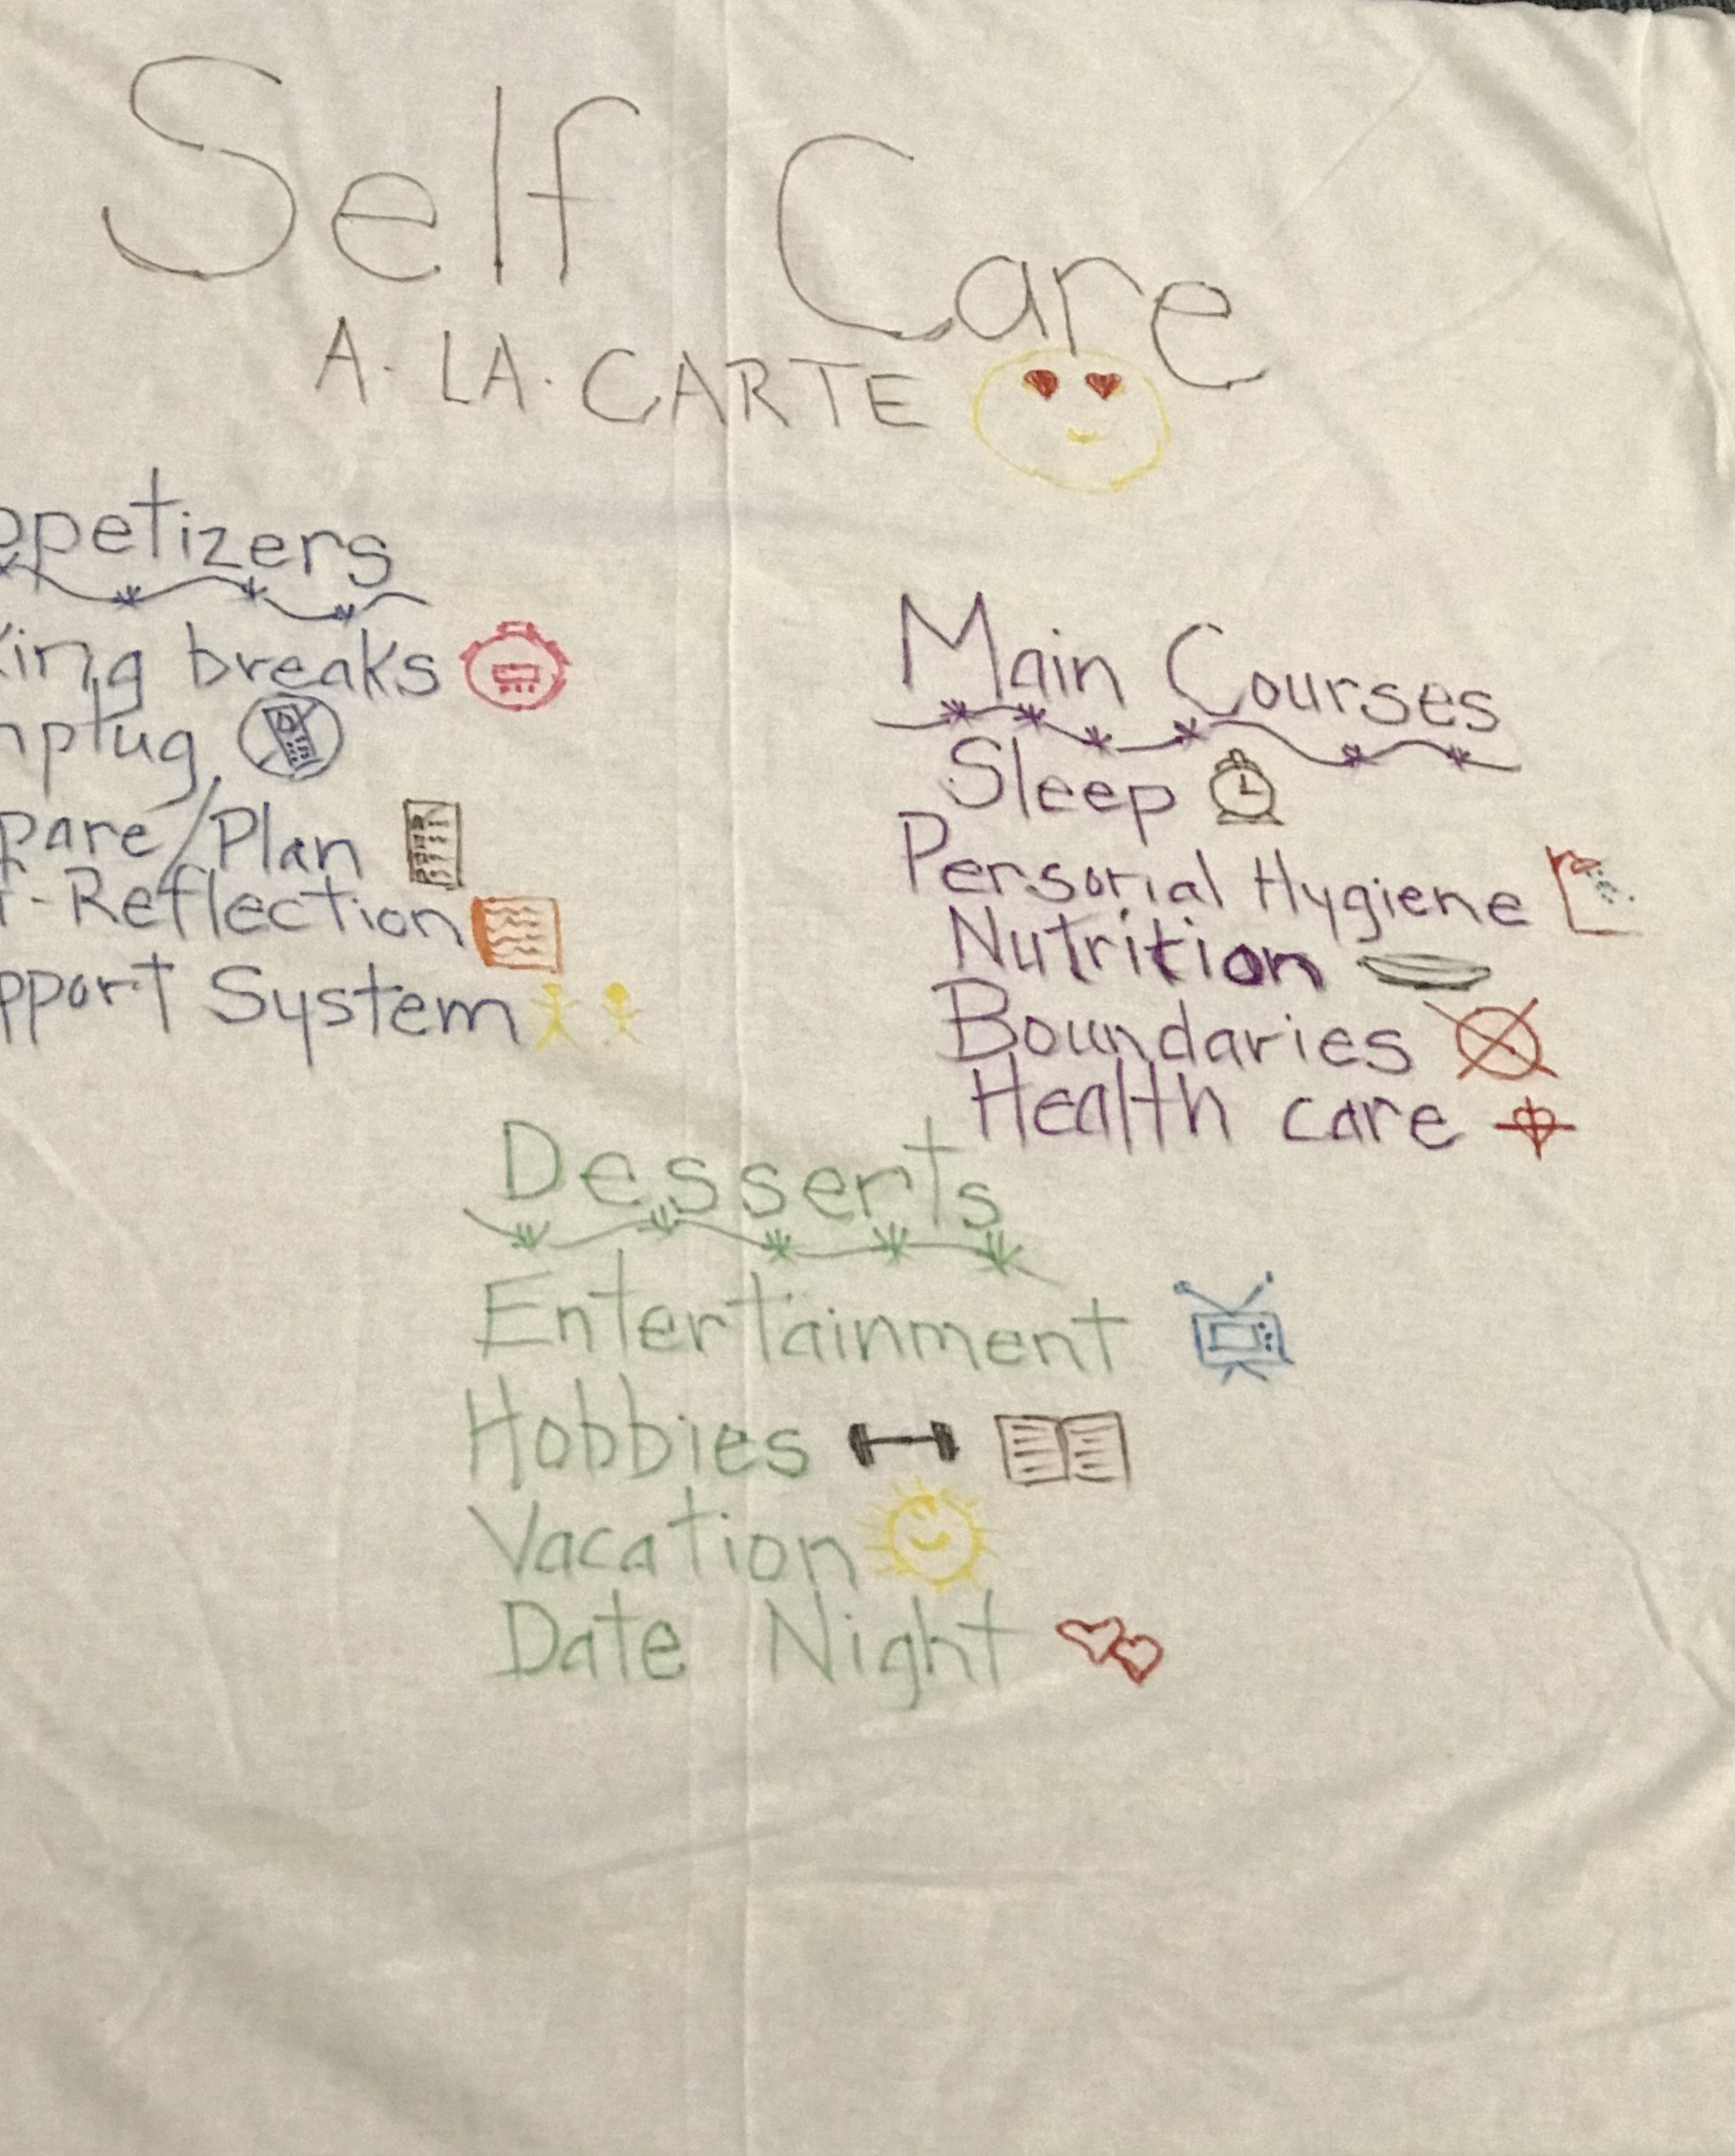 Self Care
A·LA·CARTE
ppetizers
king breaks
nplug
pare/Plan
f-Reflection
pport System
Main Courses
Sleep
Personal Hygiene
Nutrition
Boundaries
Health care
Desserts
Entertainment
Hobbies
Vacation
Date Night